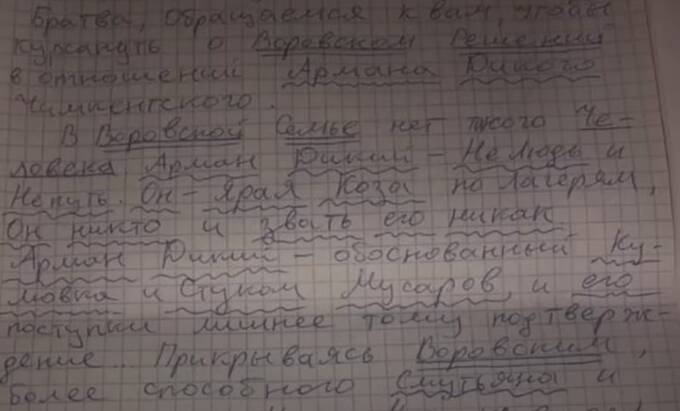 Братва, обращаемся к вам, чтобы
курсануть о Воровском Решении
в отношении Армана Дикого
Чимкентского.
В Воровской Семье нет такого Че-
ловека Арман Дикий - Нелюдь и
Непуть. Он - Ярая Коза по лагерям,
Он никто и звать его никак.
Арман Дикий - обоснованный Ку-
мовка и Стукач Мусаров, и его
поступки лишнее тому подтверж-
дение. Прикрываясь Воровским,
более способного Смутьяна и